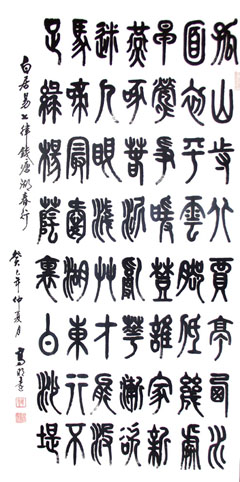 孤山寺北賈亭西水
面初平雲腳低幾處
早鶯爭暖樹誰家新
燕啄春泥亂花漸欲
迷人眼淺草才能沒
馬蹄最愛湖東行不
足綠楊蔭裏白沙堤
白居易七律錢塘湖春行
癸巳年仲夏月